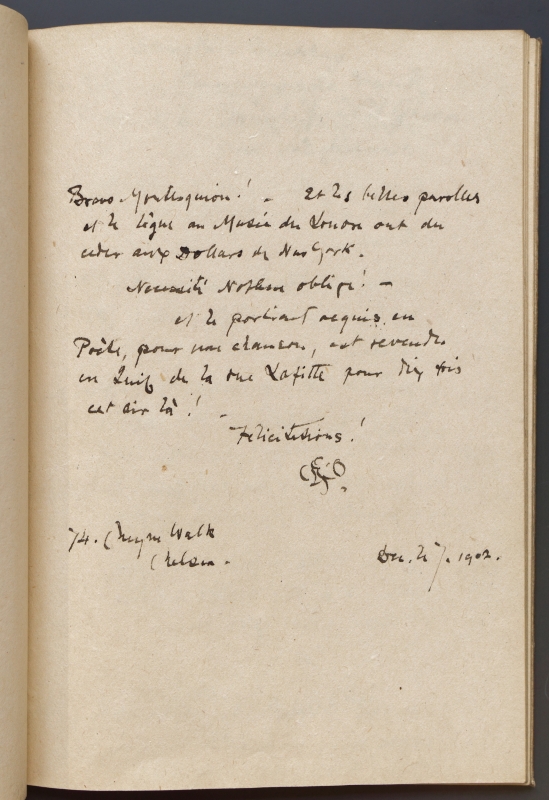 Bravo Montesquiou! – Et les belles parolles
et le légue au Musée du Louvre ont du
ceder aux Dollars de New York.
Necessité Noblesse oblige! –
et le portrait acquis en
Poéte, pour une chanson, est revendu
en Juif de la rue Lafitte pour dix fois
cet air là! –
Felicitations!
74. Cheyne Walk
Chelsea.
Dec. 1902.